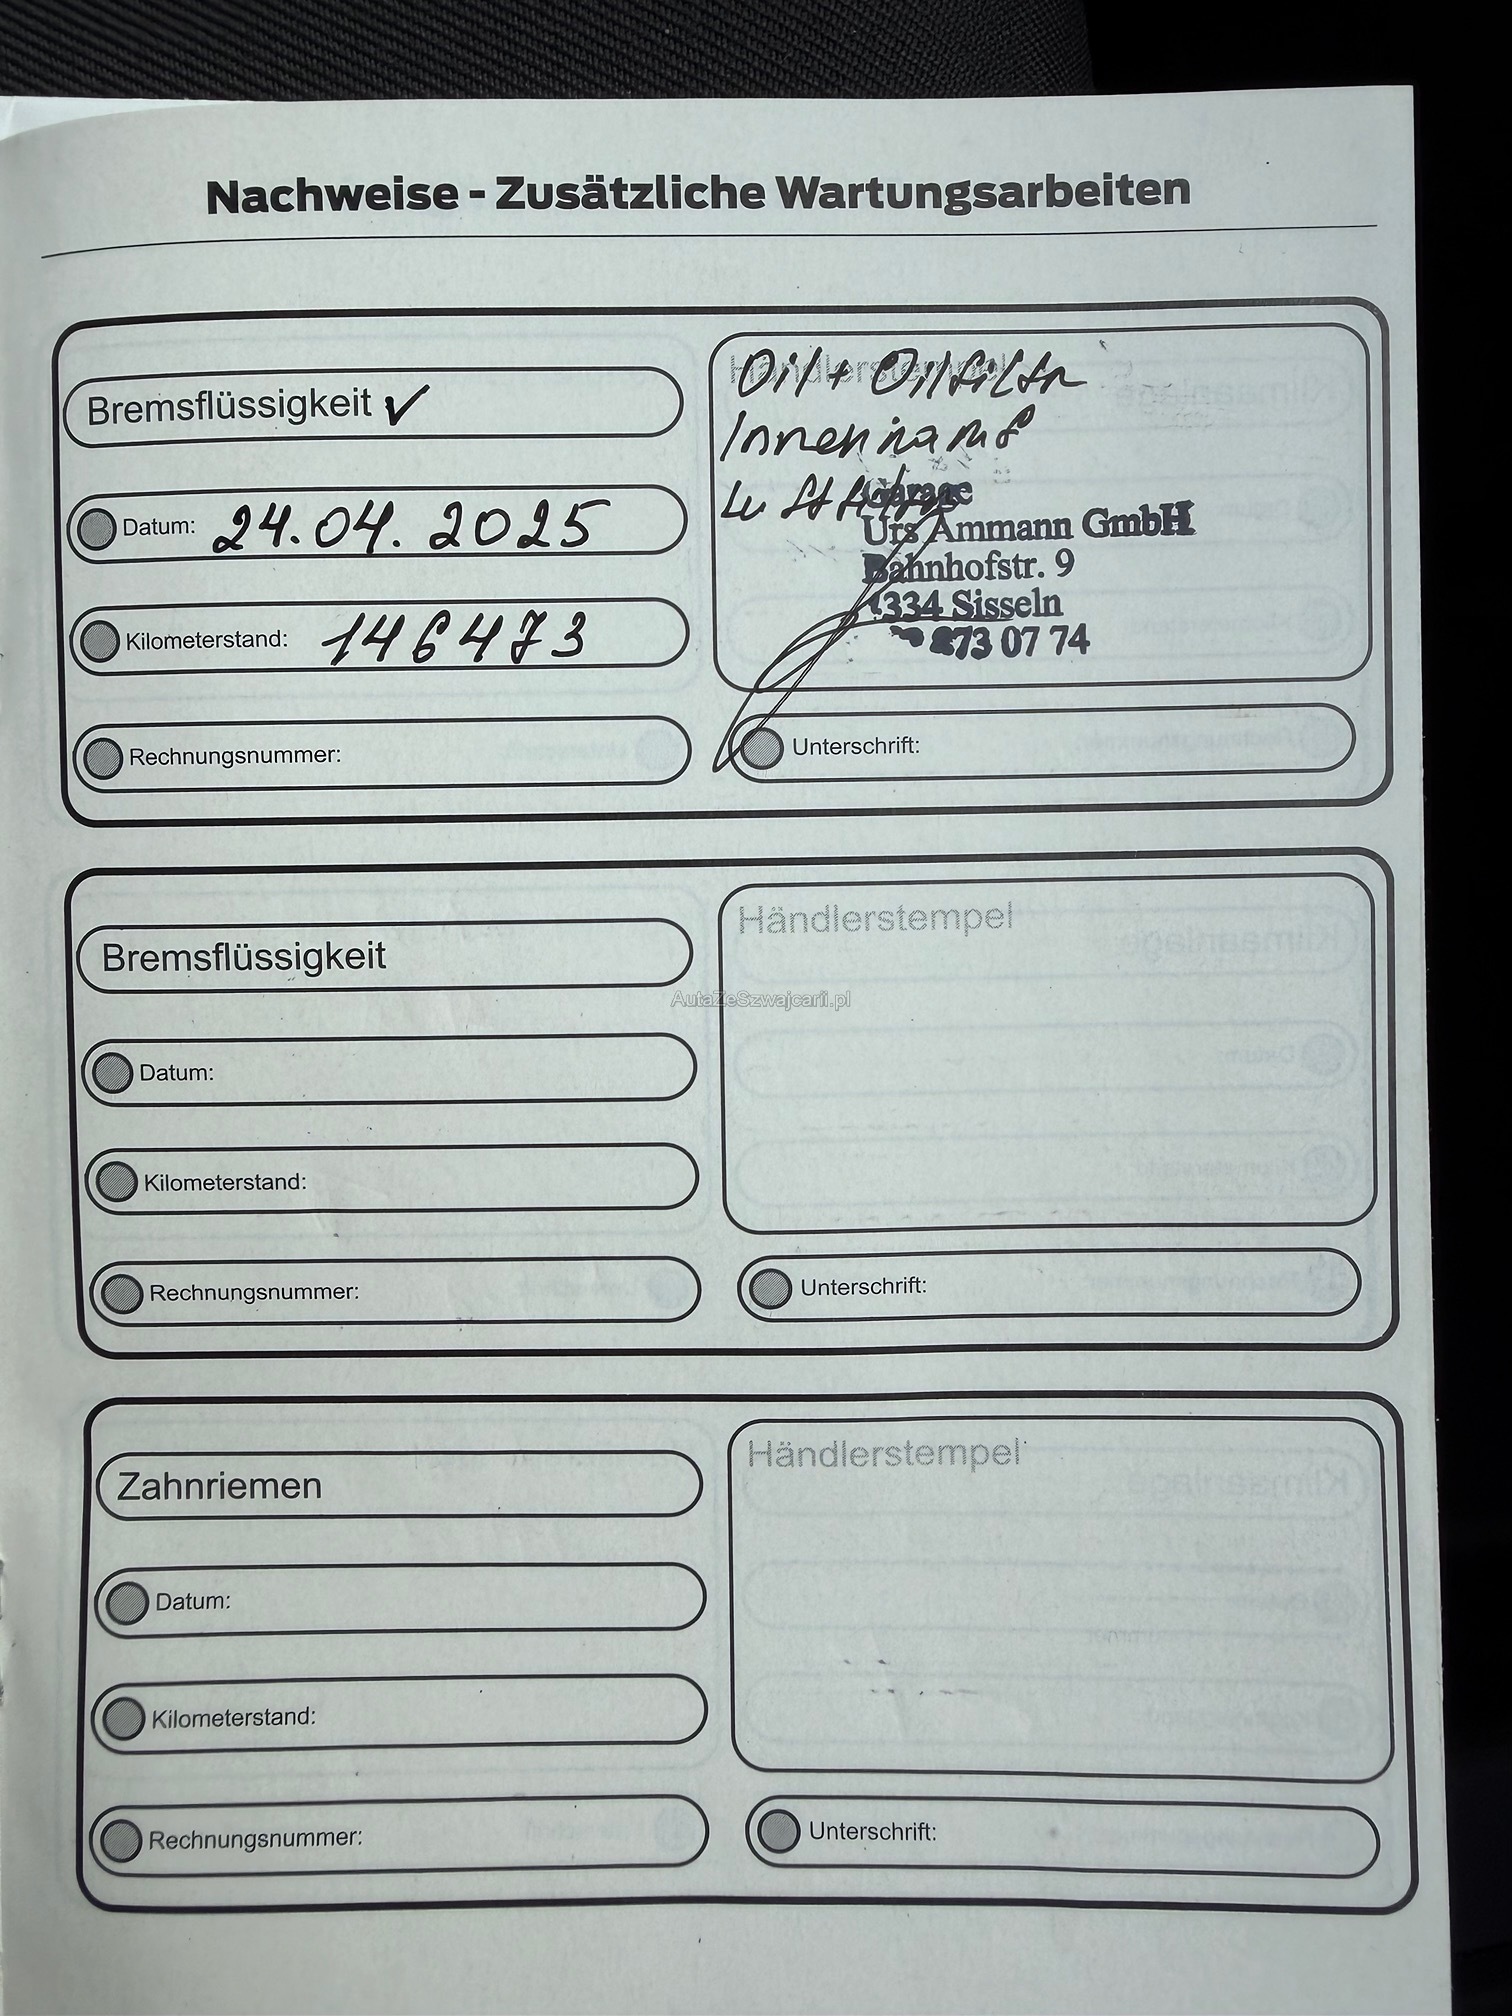 Nachweise - Zusätzliche Wartungsarbeiten
Bremsflüssigkeit ✓
Datum: 24.04.2025
Kilometerstand: 146473
Rechnungsnummer:
Händlerstempel
Oil + Oilfilter
Innenraum
Luftfilter
Garage
Urs Ammann GmbH
Bahnhofstr. 9
4334 Sisseln
873 07 74
Unterschrift:
Bremsflüssigkeit
Datum:
Kilometerstand:
Rechnungsnummer:
Händlerstempel
AutaZeSzwajcarii.pl
Unterschrift:
Zahnriemen
Datum:
Kilometerstand:
Rechnungsnummer:
Händlerstempel
Unterschrift: